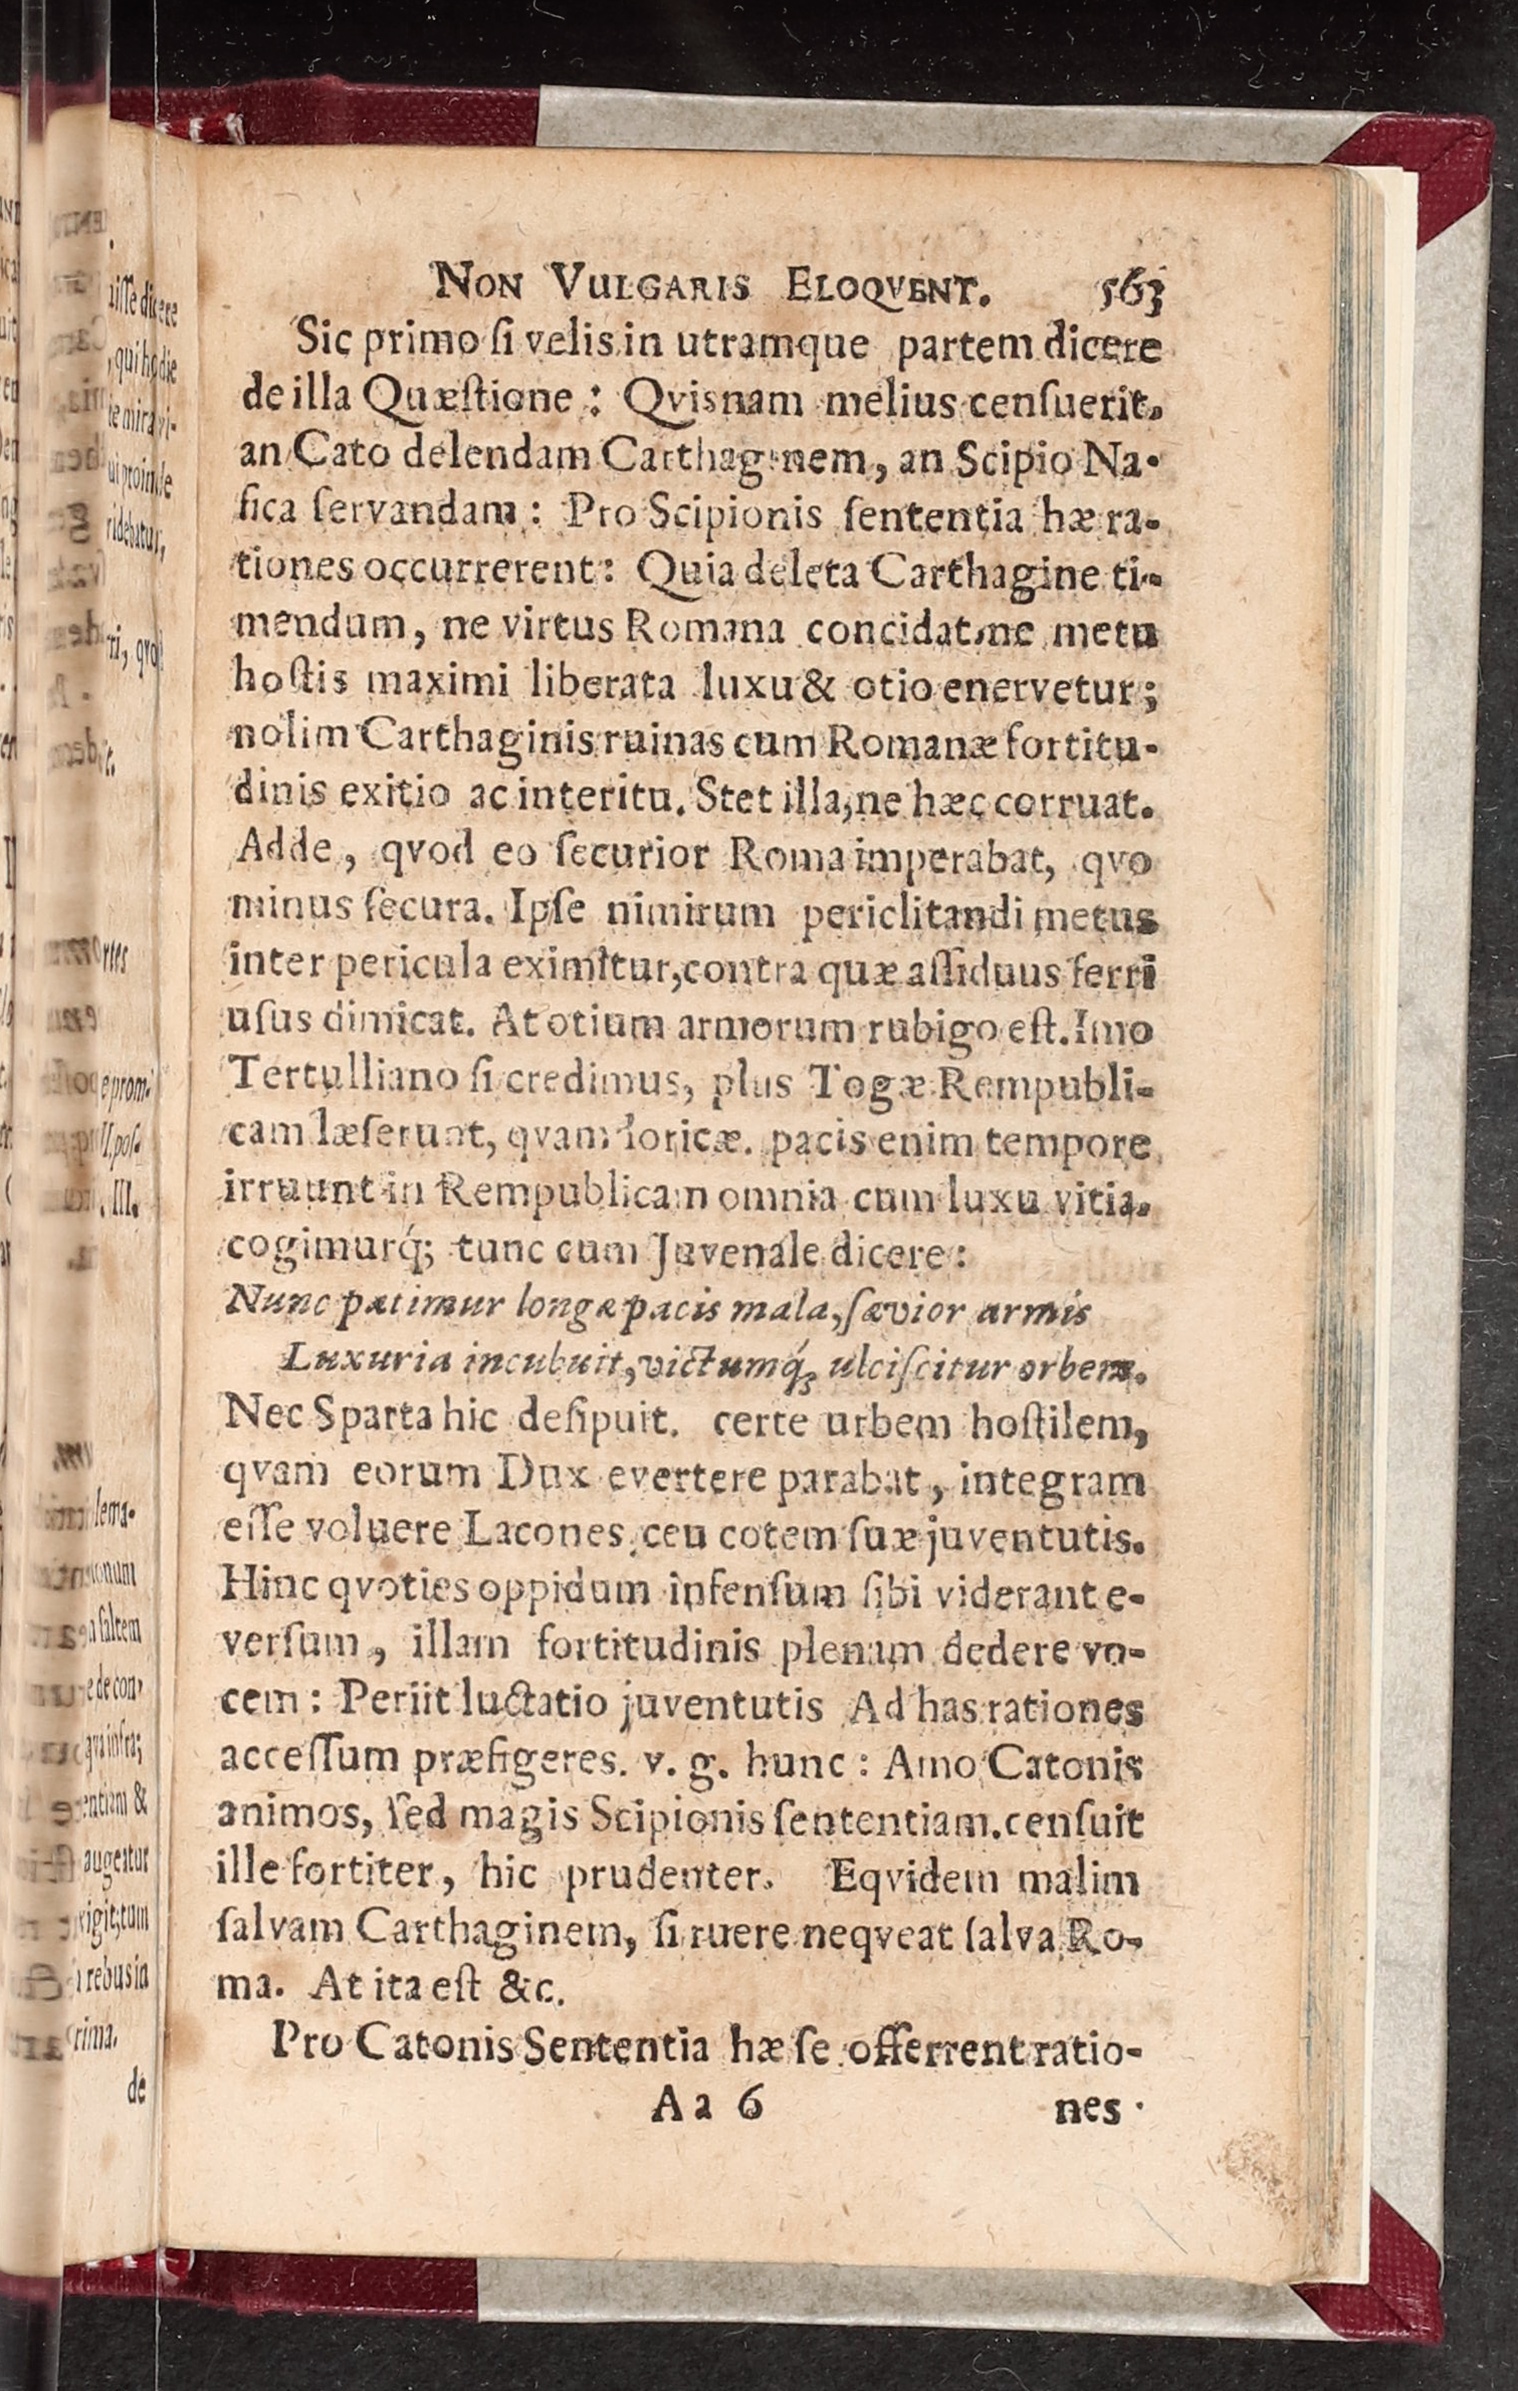 NON VULGARIS ELOQVENT. 563
Sic primo ſi velis in utramque partem dicere
de illa Quæſtione: Qvisnam melius cenſuerit,
an Cato delendam Carthaginem, an Scipio Na-
ſica ſervandam: Pro Scipionis ſententia hæ ra-
tiones occurrerent: Quia deleta Carthagine ti-
mendum, ne virtus Romana concidat, ne metu
hoſtis maximi liberata luxu & otio enervetur;
nolim Carthaginis ruinas cum Romanæ fortitu-
dinis exitio ac interitu. Stet illa, ne hæc corruat.
Adde, qvod eo ſecurior Roma imperabat, qvo
minus ſecura. Ipſe nimirum periclitandi metus
inter pericula eximitur, contra quæ aſſiduus ferri
uſus dimicat. At otium armorum rubigo eſt. Imo
Tertulliano ſi credimus, plus Togæ Rempubli-
cam læſerunt, qvam loricæ. pacis enim tempore
irruunt in Rempublicam omnia cum luxu vitia.
cogimurq́; tunc cum Juvenale dicere:
Nunc patimur longæ pacis mala, ſævior armis
Luxuria incubuit, victumq́; ulciſcitur orbem.
Nec Sparta hic deſipuit. certe urbem hoſtilem,
qvam eorum Dux evertere parabat, integram
eſſe voluere Lacones, ceu cotem ſuæ juventutis.
Hinc qvoties oppidum infenſum ſibi viderant e-
verſum, illam fortitudinis plenam dedere vo-
cem: Periit luctatio juventutis Ad has rationes
acceſſum præfigeres. v. g. hunc: Amo Catonis
animos, ſed magis Scipionis ſententiam. cenſuit
ille fortiter, hic prudenter. Eqvidem malim
ſalvam Carthaginem, ſi ruere neqveat ſalva Ro-
ma. At ita eſt &c.
Pro Catonis Sententia hæ ſe offerrent ratio-
Aa 6 nes